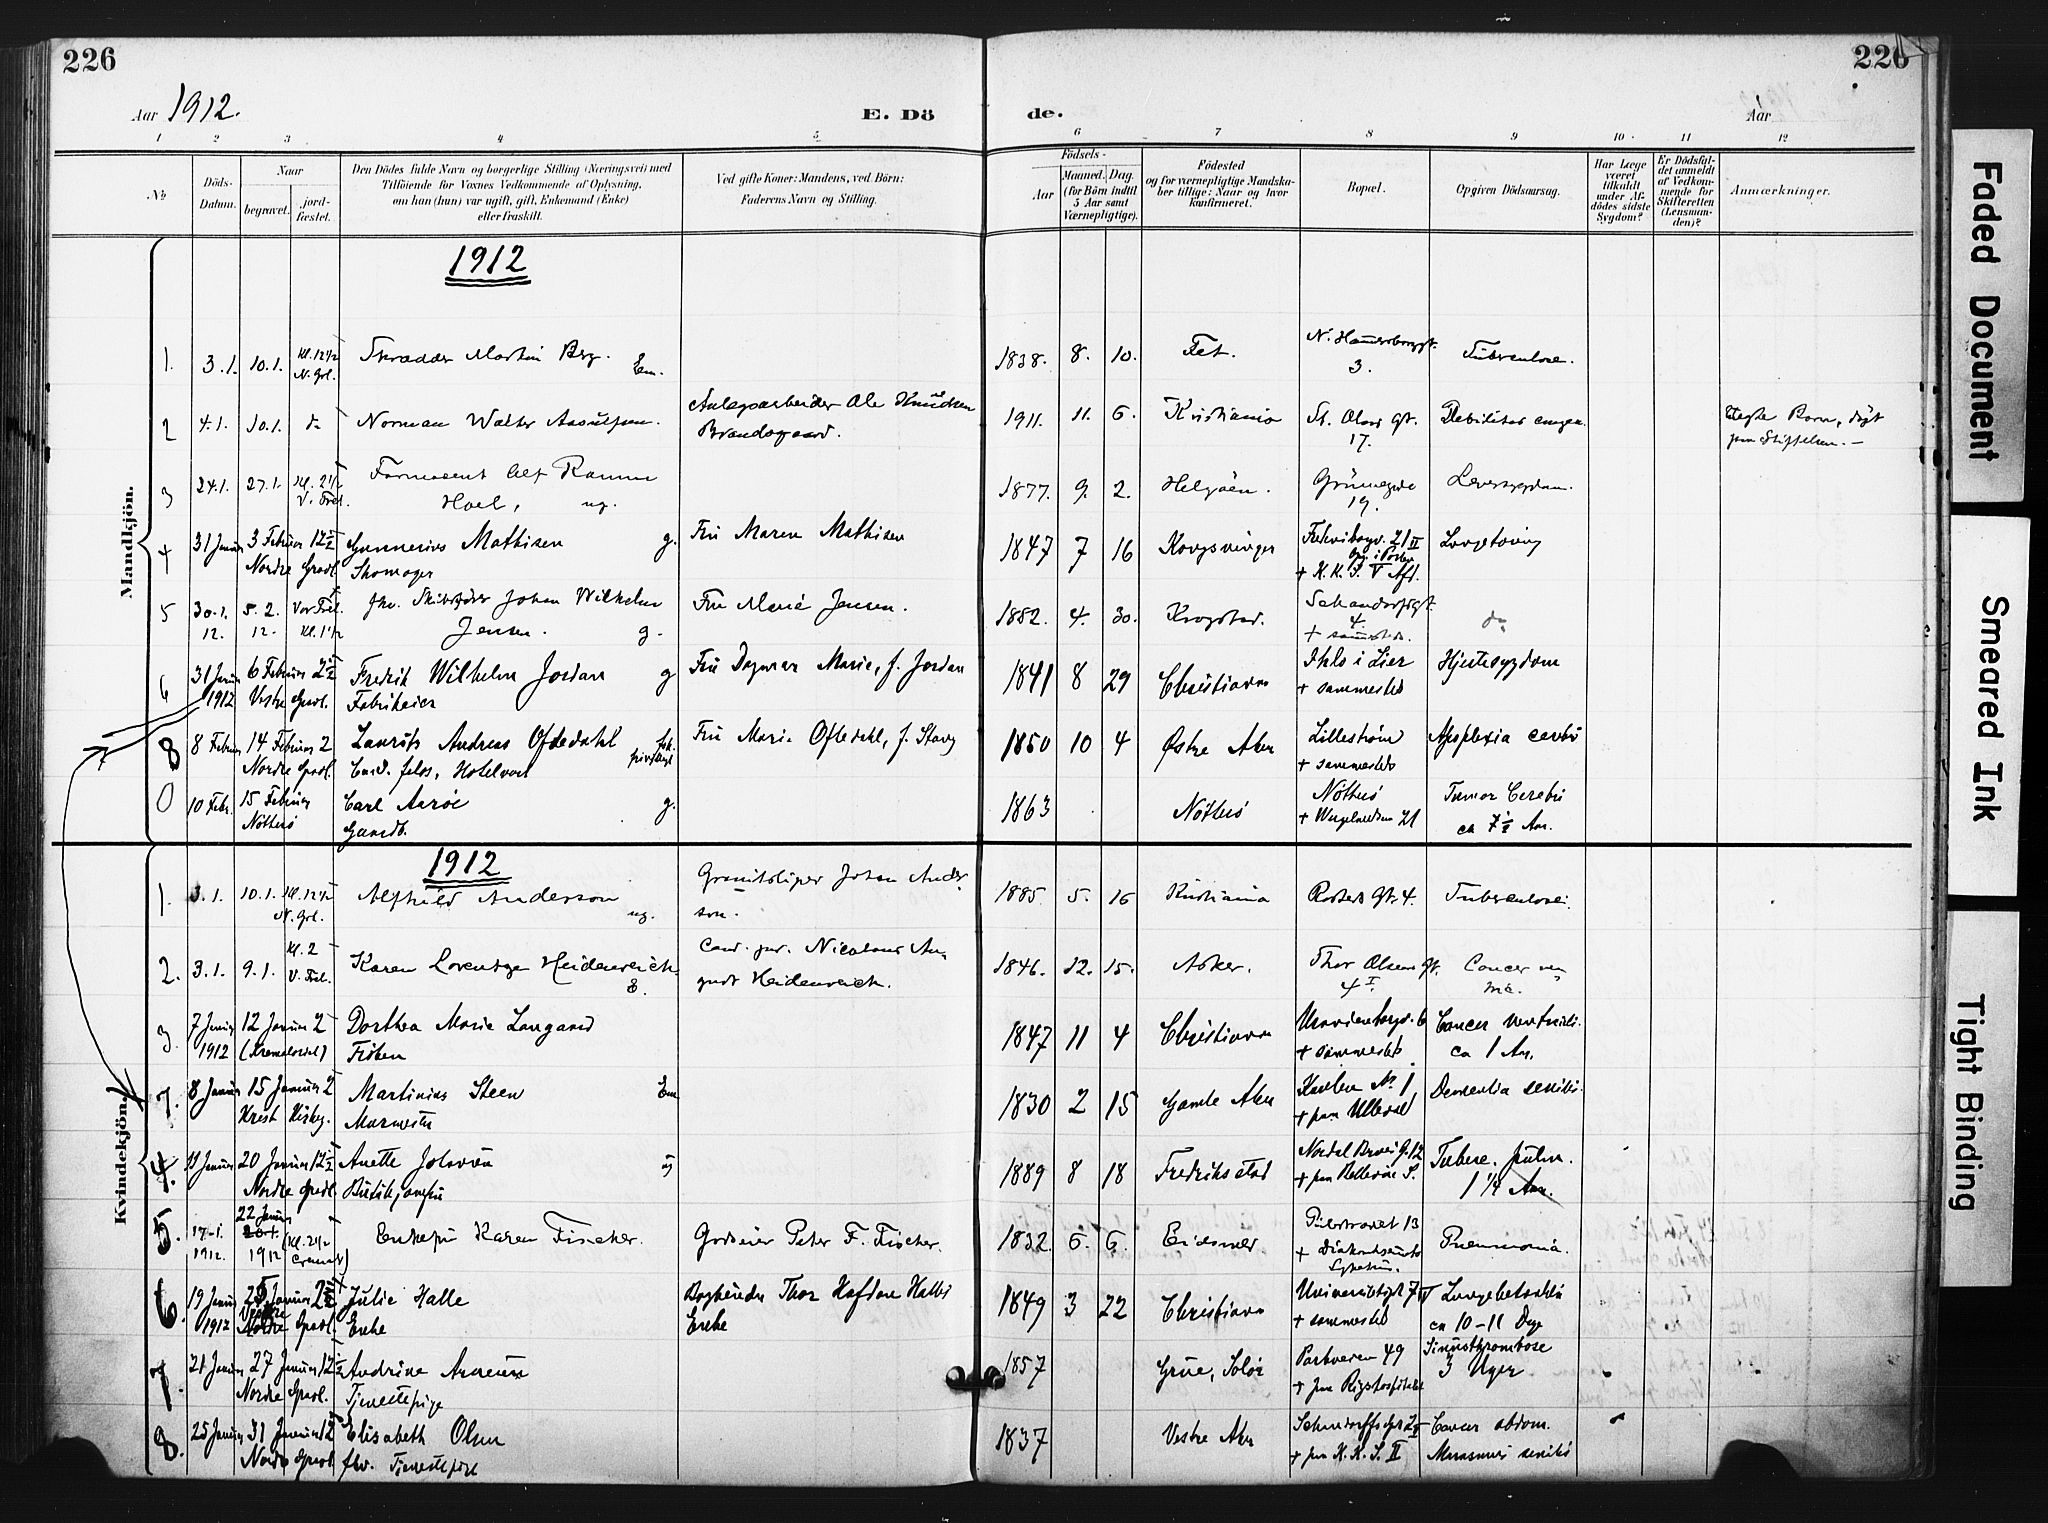 226
226
Aar 1912.
E. Dö
de.
Aar
1 2 3 4 5 6 7 8 9 10 11 12
No.
Döds-Datum.
Naar
begravet.
jordfæstet.
Den Dödes fulde Navn og borgerlige Stilling (Næringsvei) med
Tilföiende for Voxnes Vedkommende af Oplysning,
om han (hun) var ugift, gift, Enkemand (Enke)
eller fraskilt.
Ved gifte Koner: Mandens, ved Börn:
Faderens Navn og Stilling.
Födsels-
Aar
Maaned. Dag.
(for Börn indtil
5 Aar samt
Værnepligtige).
Födested
og for værnepligtige Mandskaber tillige: Naar og hvor
konfirmeret.
Bopæl.
Opgiven Dödsaarsag.
Har Læge
været
tilkaldt
under Afdödes sidste
Sygdom?
Er Dödsfaldet anmeldt
af Vedkommende for
Skifteretten
(Lensmanden)?
Anmærkninger.
Mandkjön.
1912
1. 3.1. 10.1. Kl. 12 1/2 N. Grl. Skrædder Martin Berg. Em. 1838. 8. 10. Fet. N. Hammersborggt. 3. Tuberculose.
2 4.1. 10.1. do Norman Walter Aasulfsen. Anlægsarbeider Ole Knudsen
Brandsgaard. 1911. 11. 6. Kristiania St. Olavs Gt. 17. Debilitas congen. Uægte Barn, dögt
paa Stiftelsen.
3 24.1. 27.1. Kl. 2 1/2 V. Frel. Farmaceut Alf Ramm
Hoel, ug. 1877. 9. 2. Helgöen. Grünnegade 19. Leversygdom.
4 31 Januar 3 Februar 12 1/2 Gunnerius Mathisen g. Fru Maren Mathisen 1847 7 16 Kongsvinger 21 II Lungetæring
Nordre Gravl. Skomager + K. K. S. V Afl.
5 30.1. 12. 5.2. 12. Vor Frel. Kl. 1 1/2 fhv. Skibsfører Johan Wilhelm
Jensen. g. Fru Marie Jensen. 1852. 4. 30. Krogstad. 4.
+ sammesteds. do
6 31 Januar 1912 6 Februar 2 1/2 Vestre Gravl. Fredrik Wilhelm Jordan g
Fabrikeier Fru Dagmar Marie, f. Jordan 1841 8 29 Christiania i Lier
+ sammesteds Hjertesygdom
8 8 Februar 14 Februar 2 Nordre Gravl. Laurits Andreas Oftedahl
Cand. filos, Hotelvært Fru Marie Oftedahl, f. Stang 1850 10 4 Østre Aker Lillestrøm
+ sammesteds Apoplexia cerebri
0 10 Febr. 15 Februar Nötterö Carl Aarøe g.
Gaardb. 1863 Nötterö Nötterö
+ 21 Tumor Cerebri
ca 7 1/2 Aar.
Kvindekjön.
1912
1. 3.1. 10.1. Kl. 12 1/2 N. Grl. Alfhild Anderson ug. Granitsliper Johan Anderson. 1885. 5. 16 Kristiania Gt. 4. Tuberculose.
2. 3.1. 9.1. Kl. 2 V. Frel. Karen Lorentze Heidenreich E. Cand. jur. Nicolaus August Heidenreich. 1846. 12. 15. Asker. Thor Olsens Gt. 4 I. Cancer mamæ.
3. 7 Januar 1912 12 Januar 2 (Krematoriet) Dorthea Marie Langaard
Frøken 1847 11 4 Christiania Uranienborgv. 6
+ sammesteds Cancer ventriculi.
ca 1 Aar.
7. 8 Januar 15 Januar 2 Krist Kirkeg. Martinius Steen Em
Murmester 1830 2 15 Gamle Aker No 1
+ paa Ullevaal Dementia senilis.
4. 11 Januar 20 Januar 12 1/2 Nordre Gravl. Anette u
Butikjomfru 1889 8 18 Fredriksstad 12
+ paa Tuberc. pulm.
1 1/4 Aar.
5. 17-1. 1912. 22 Januar 1912 (Kl. 2 1/2 Cremat) Enkefru Karen Fischer. Godseier Peter F. Fischer. 1832. 6. 6. Eidsvold Pilestrædet 13
+ Sykehus. Pneumonia.
6. 19 Januar 1912 25 Januar 2 1/2 Vestre Gravl. Julie Halle
Enke Bogbinder Thor Halle
Enke 1849 3 22 Christiania Universitetsgt 7
+ sammesteds Lungebetændelse
ca 10-11 Dage
7. 21 Januar 27 Januar 12 1/2 Nordre Gravl. Andrine
Tjenestepige 1857 Grue, Solör Parkveien 49
+ paa Rigshospitalet Sinusthrombose
3 Uger
8. 25 Januar 31 Januar 12 Nordre Gravl Elisabeth Olsen
fhv. Tjenestepige 1837 Vestre Aker
+ paa K. K. S. II Cancer abdom.
Marasmus senilis
Faded Document
Smeared Ink
Tight Binding